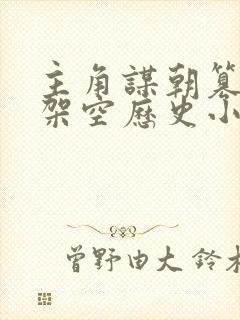 主角謀朝篡
架空歷史小
曾野由大 鈴木